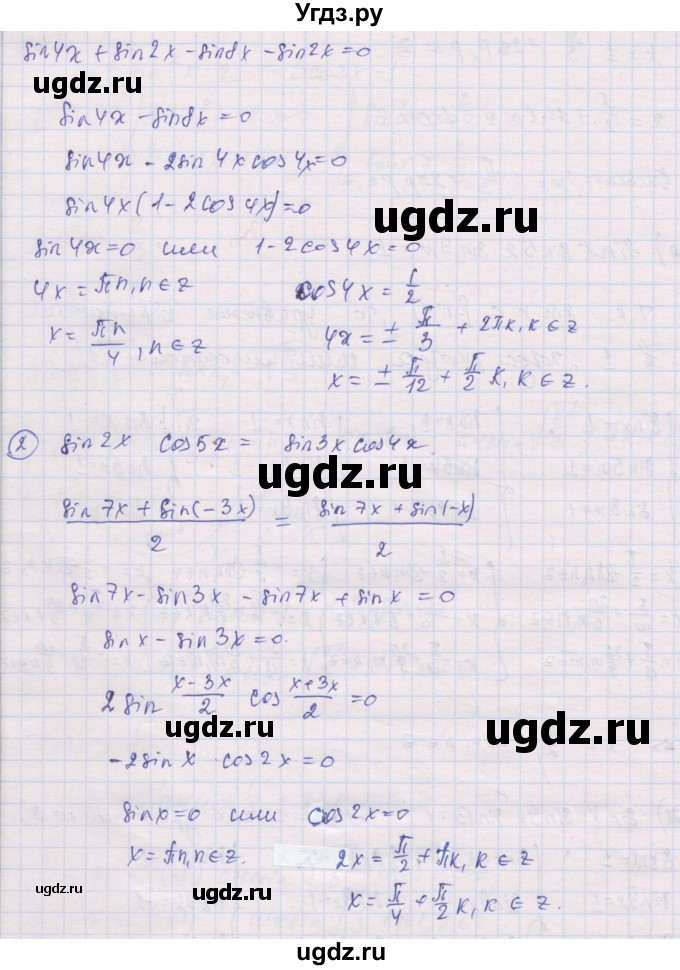 Угдз.ру
sin4x + sin2x - sin8x - sin2x = 0
ugdz.ru
sin4x - sin8x = 0
sin4x - 2sin4x cos4x = 0
sin4x(1 - 2cos4x) = 0
ugdz.ru
sin4x = 0 или 1 - 2cos4x = 0
4x = πn, n ∈ z cos4x = 1/2
x = πn/4, n ∈ z 4x = ± π/3 + 2πk, k ∈ z
x = ± π/12 + π/2 k, k ∈ z.
② sin2x cos5x = sin3x cos4x
ugdz.ru
(sin7x + sin(-3x))/2 = (sin7x + sin(-x))/2
sin7x - sin3x - sin7x + sinx = 0
sinx - sin3x = 0.
2 sin (x-3x)/2 cos (x+3x)/2 = 0
ugdz.ru
-2sinx · cos2x = 0
sinx = 0 или cos2x = 0
x = πn, n ∈ z. 2x = π/2 + πk, k ∈ z
ugdz.ru
x = π/4 + π/2 k, k ∈ z.
ugdz.ru
ugdz.ru